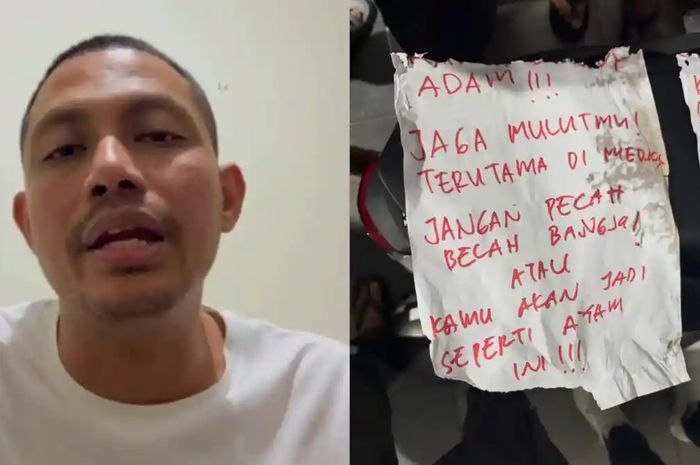 ADAM!!!
JAGA MULUTMU!
TERUTAMA DI
JANGAN PECAH
BECAH BANGSA!
ATAU
KAMU AKAN JADI
SEPERTI AYAM
INI!!!